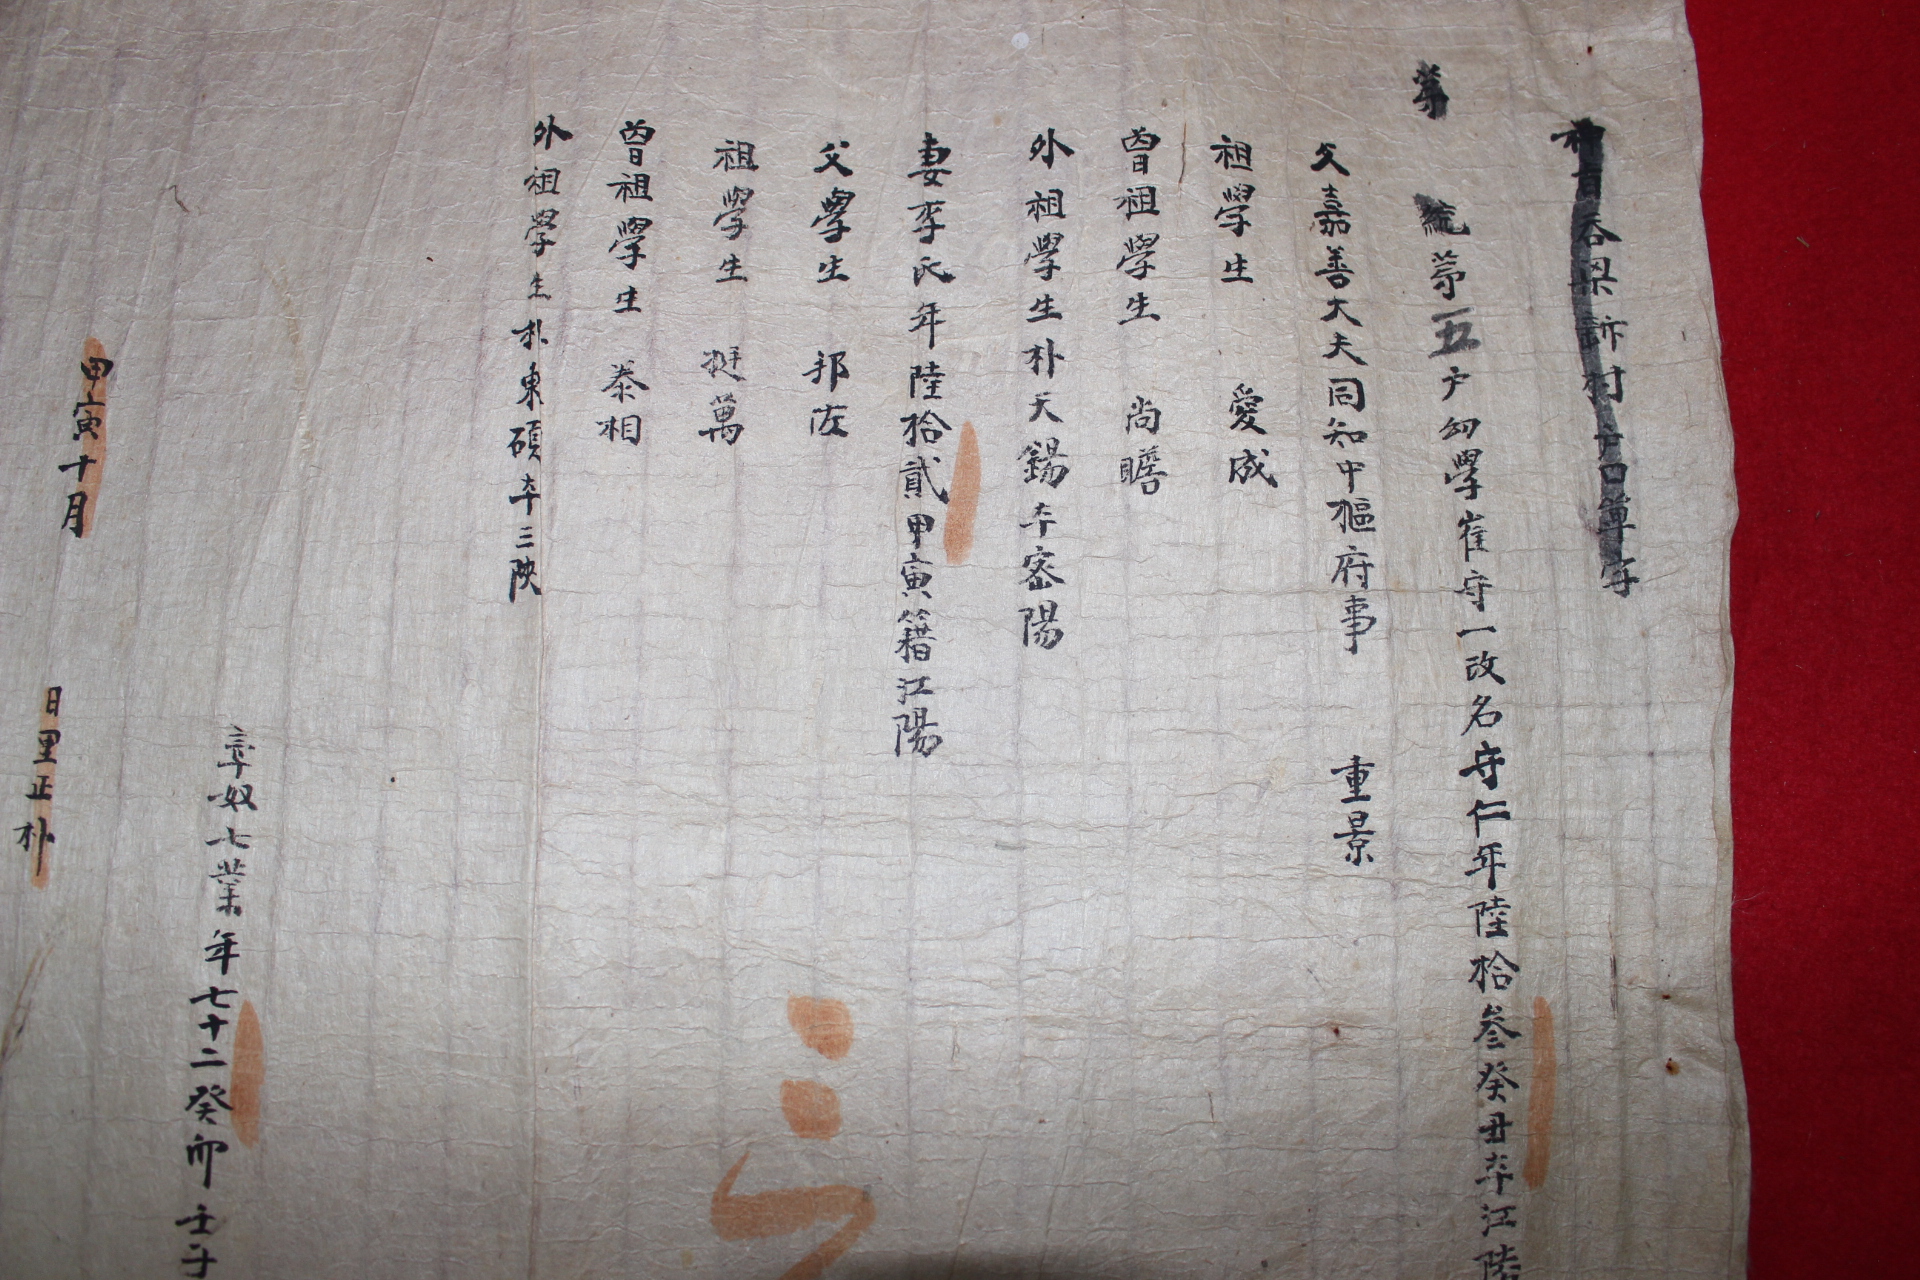 吞 村戶口單字
第 統第五戶幼學崔守一改名守仁年陸拾叁癸丑本江陵
父嘉善大夫同知中樞府事 重景
祖學生 愛成
曾祖學生 尚瞻
外祖學生朴天錫本密陽
妻李氏年陸拾貳甲寅籍江陽
父學生 邦佐
祖學生 挺萬
曾祖學生 泰相
外祖學生朴東碩本三陜
率奴七業年七十二癸卯壬子
甲寅十月 日里正朴